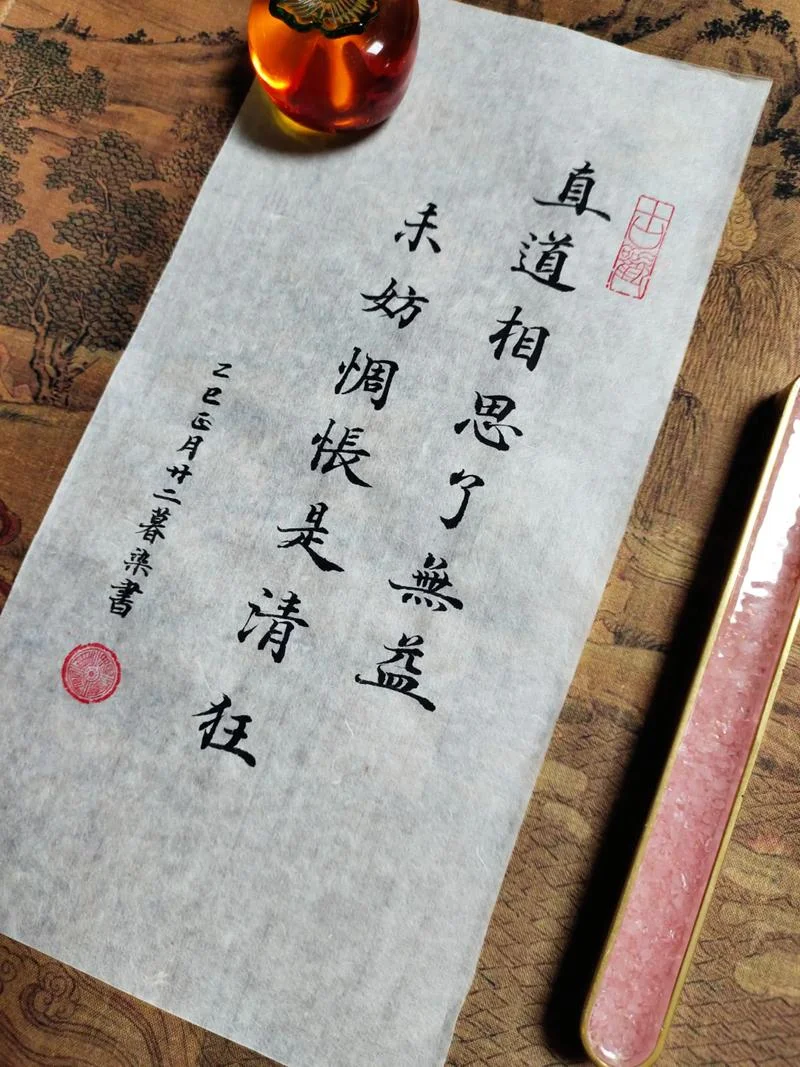 直道相思了無益
未妨惆悵是清狂
乙巳正月廿二暮染書